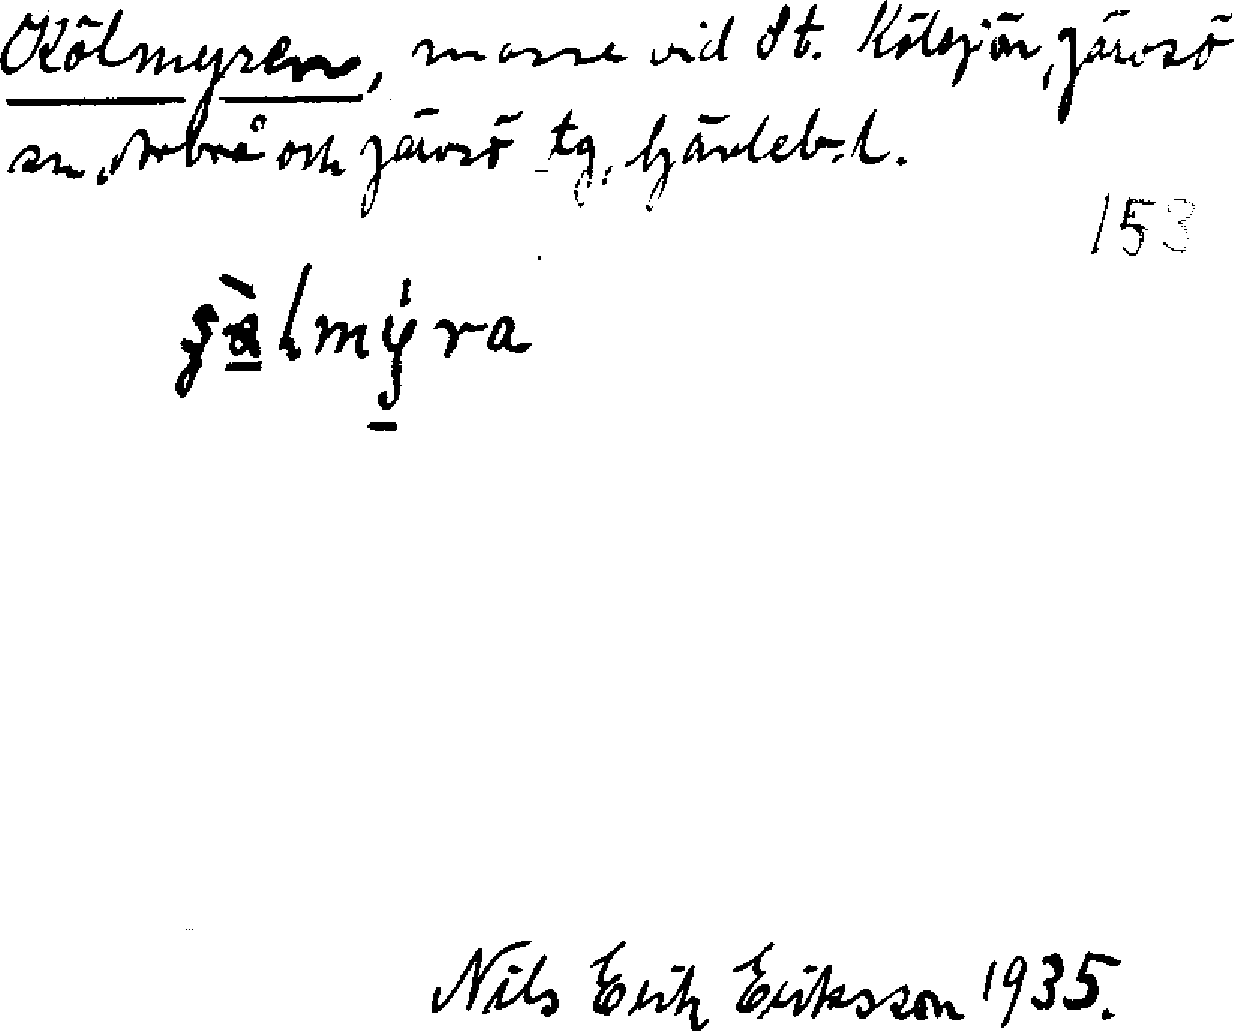 Kölmyren, mosse vid St. Kölsjön, Järvsö
sn, Arbrå och Järvsö tg, Gävleb. l.
153
Nils Erik Eriksson 1935.